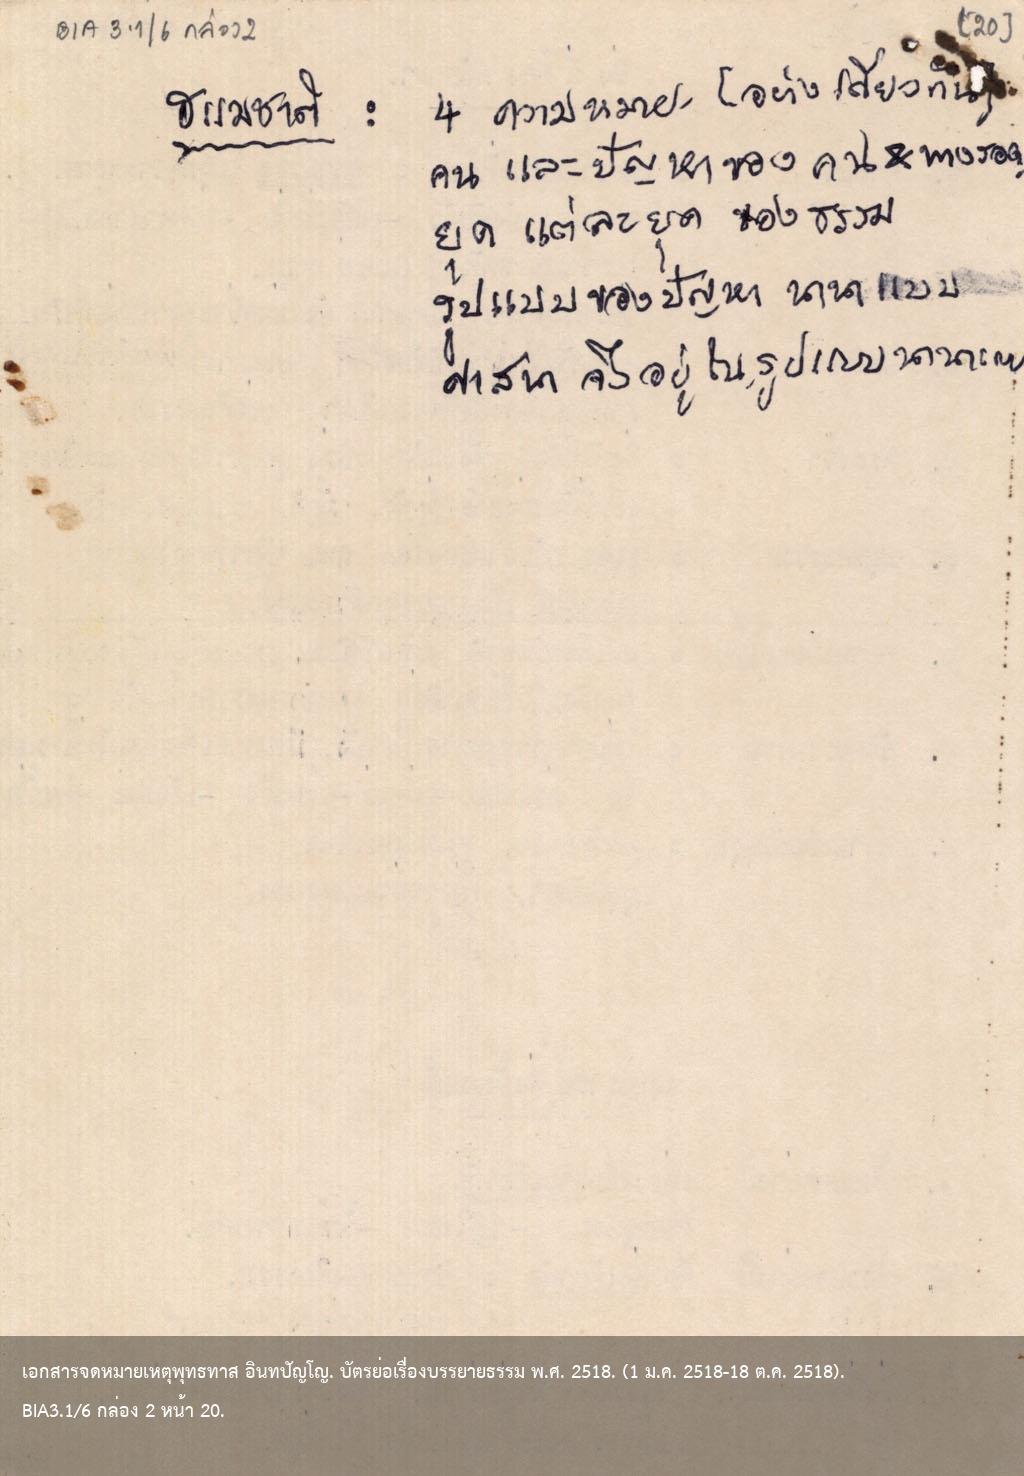 BIA 3.1/6 กล่อง2
[20]
ธรรมชาติ : 4 ความหมาย
คน และปัญหาของ คน & ทางรอด
ยุค แต่ละยุค ของ ธรรม
รูปแบบของปัญหา นานาแบบ
ศาสนา จึงอยู่ใน รูปแบบนานาแบบ
เอกสารจดหมายเหตุพุทธทาส อินทปัญโญ. บัตรย่อเรื่องบรรยายธรรม พ.ศ. 2518. (1 ม.ค. 2518-18 ต.ค. 2518).
BIA3.1/6 กล่อง 2 หน้า 20.